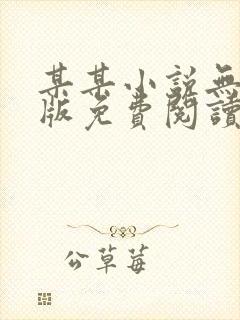 某某小说無
版免費閱讀
公草莓